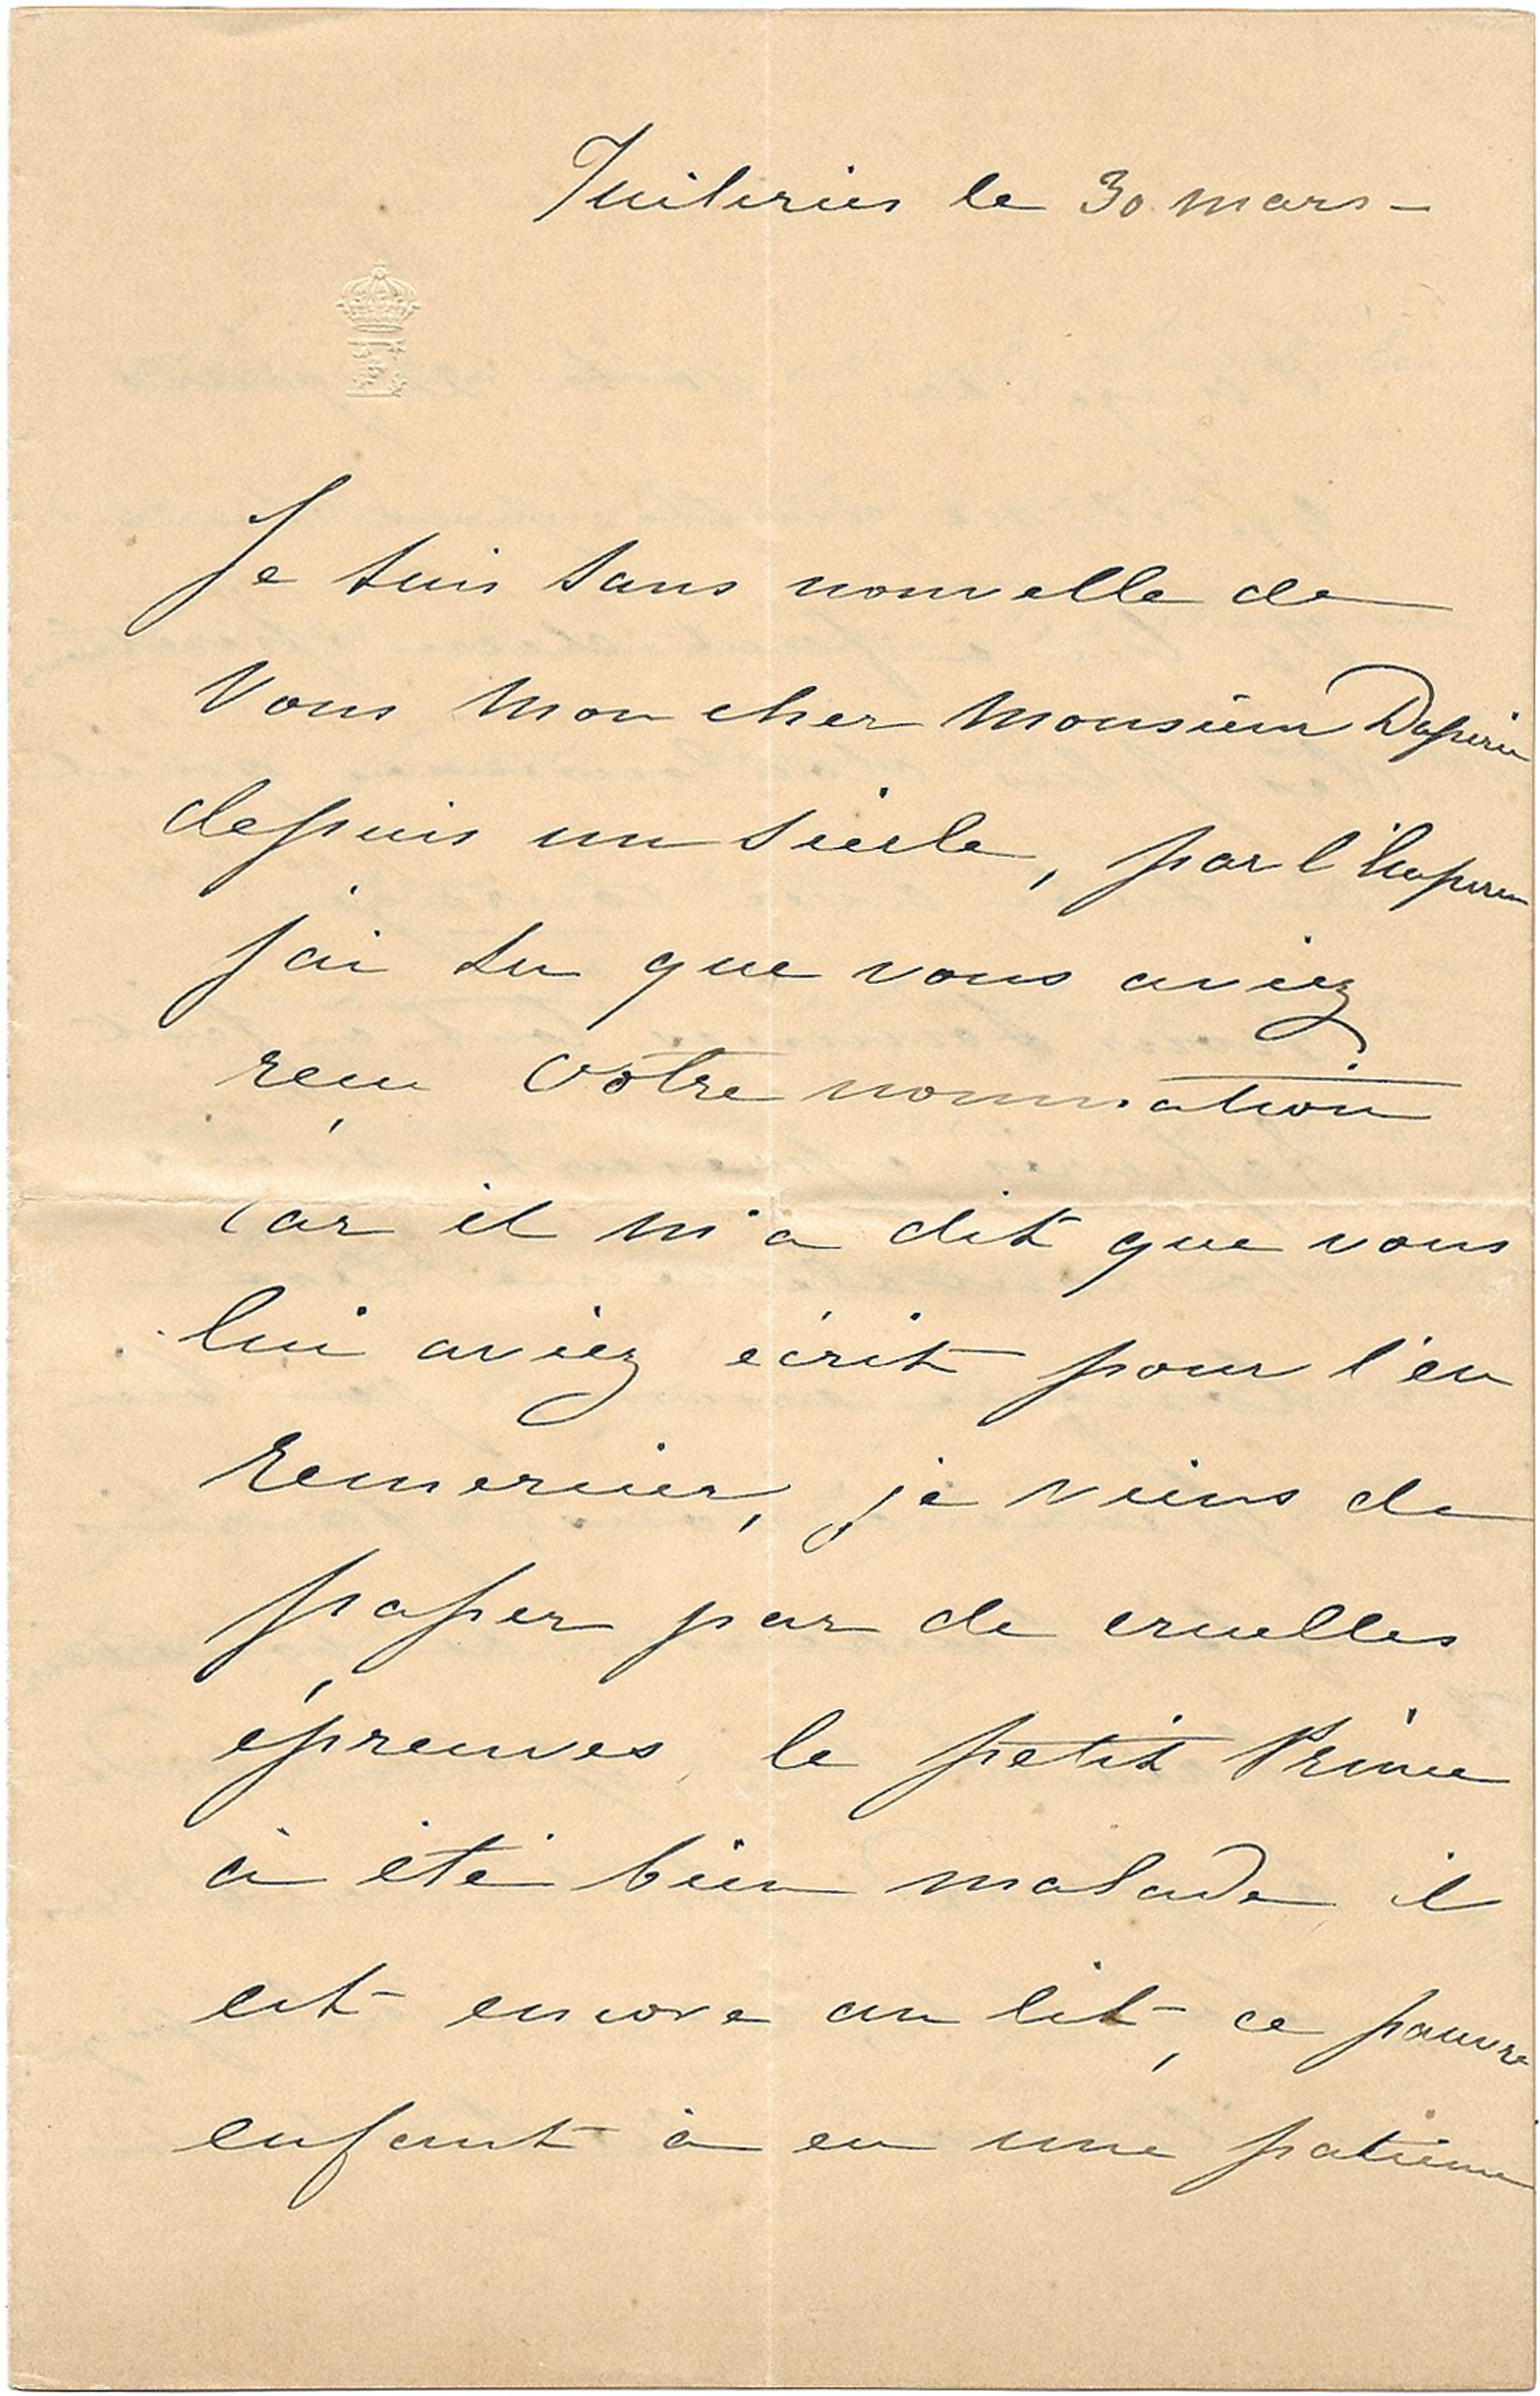 Tuileries le 30 mars -
Je suis sans nouvelle de
Vous mon cher monsieur
depuis un siècle, par l'Empereur
j'ai su que vous aviez
reçu votre nomination
car il m'a dit que vous
lui aviez écrit pour l'en
remercier, je viens de
passer par de cruelles
épreuves, le petit Prince
à été bien malade il
est encore au lit, ce pauvre
enfant à eu une patience